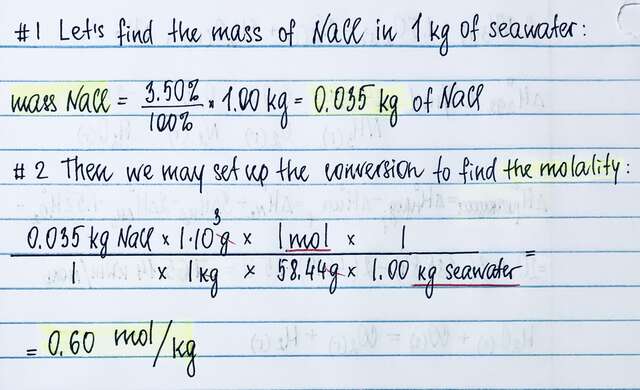 #1 Let's find the mass of NaCl in 1 kg of seawater:
mass NaCl = 3.50% / 100% × 1.00 kg = 0.035 kg of NaCl
# 2 Then we may set up the conversion to find the molality:
0.035 kg NaCl × 1·10³ g × 1 mol × 1
1 × 1 kg × 58.44g × 1.00 kg seawater =
= 0.60 mol/kg